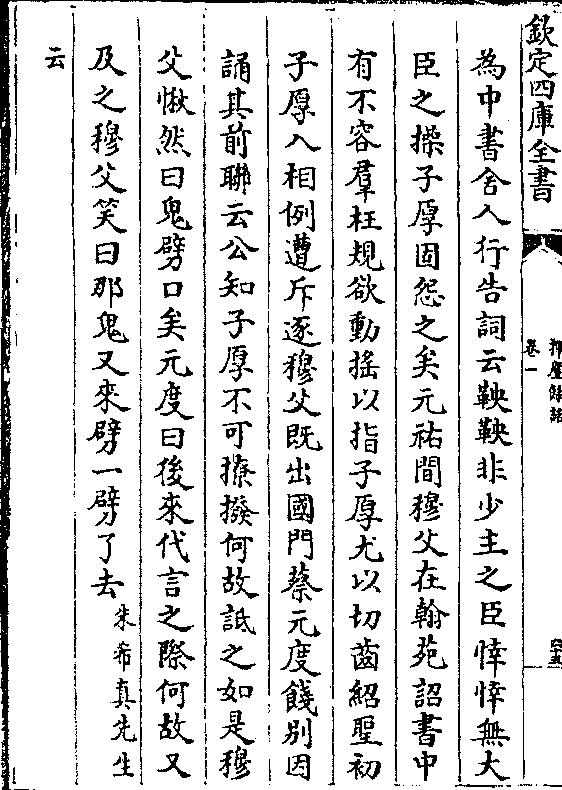 欽定四庫全書
揮麈餘話
卷一
為中書舍人行告詞云鞅鞅非少主之臣悻悻無大
臣之操子厚固怨之矣元祐間穆父在翰苑詔書中
有不容羣枉規欲動搖以指子厚尤以切齒紹聖初
子厚入相例遭斥逐穆父既出國門蔡元度餞別因
誦其前聯云公知子厚不可撩撥何故詆之如是穆
父愀然曰鬼劈口矣元度曰後來代言之際何故又
及之穆父笑曰那鬼又來劈一劈了去朱希真先生
云